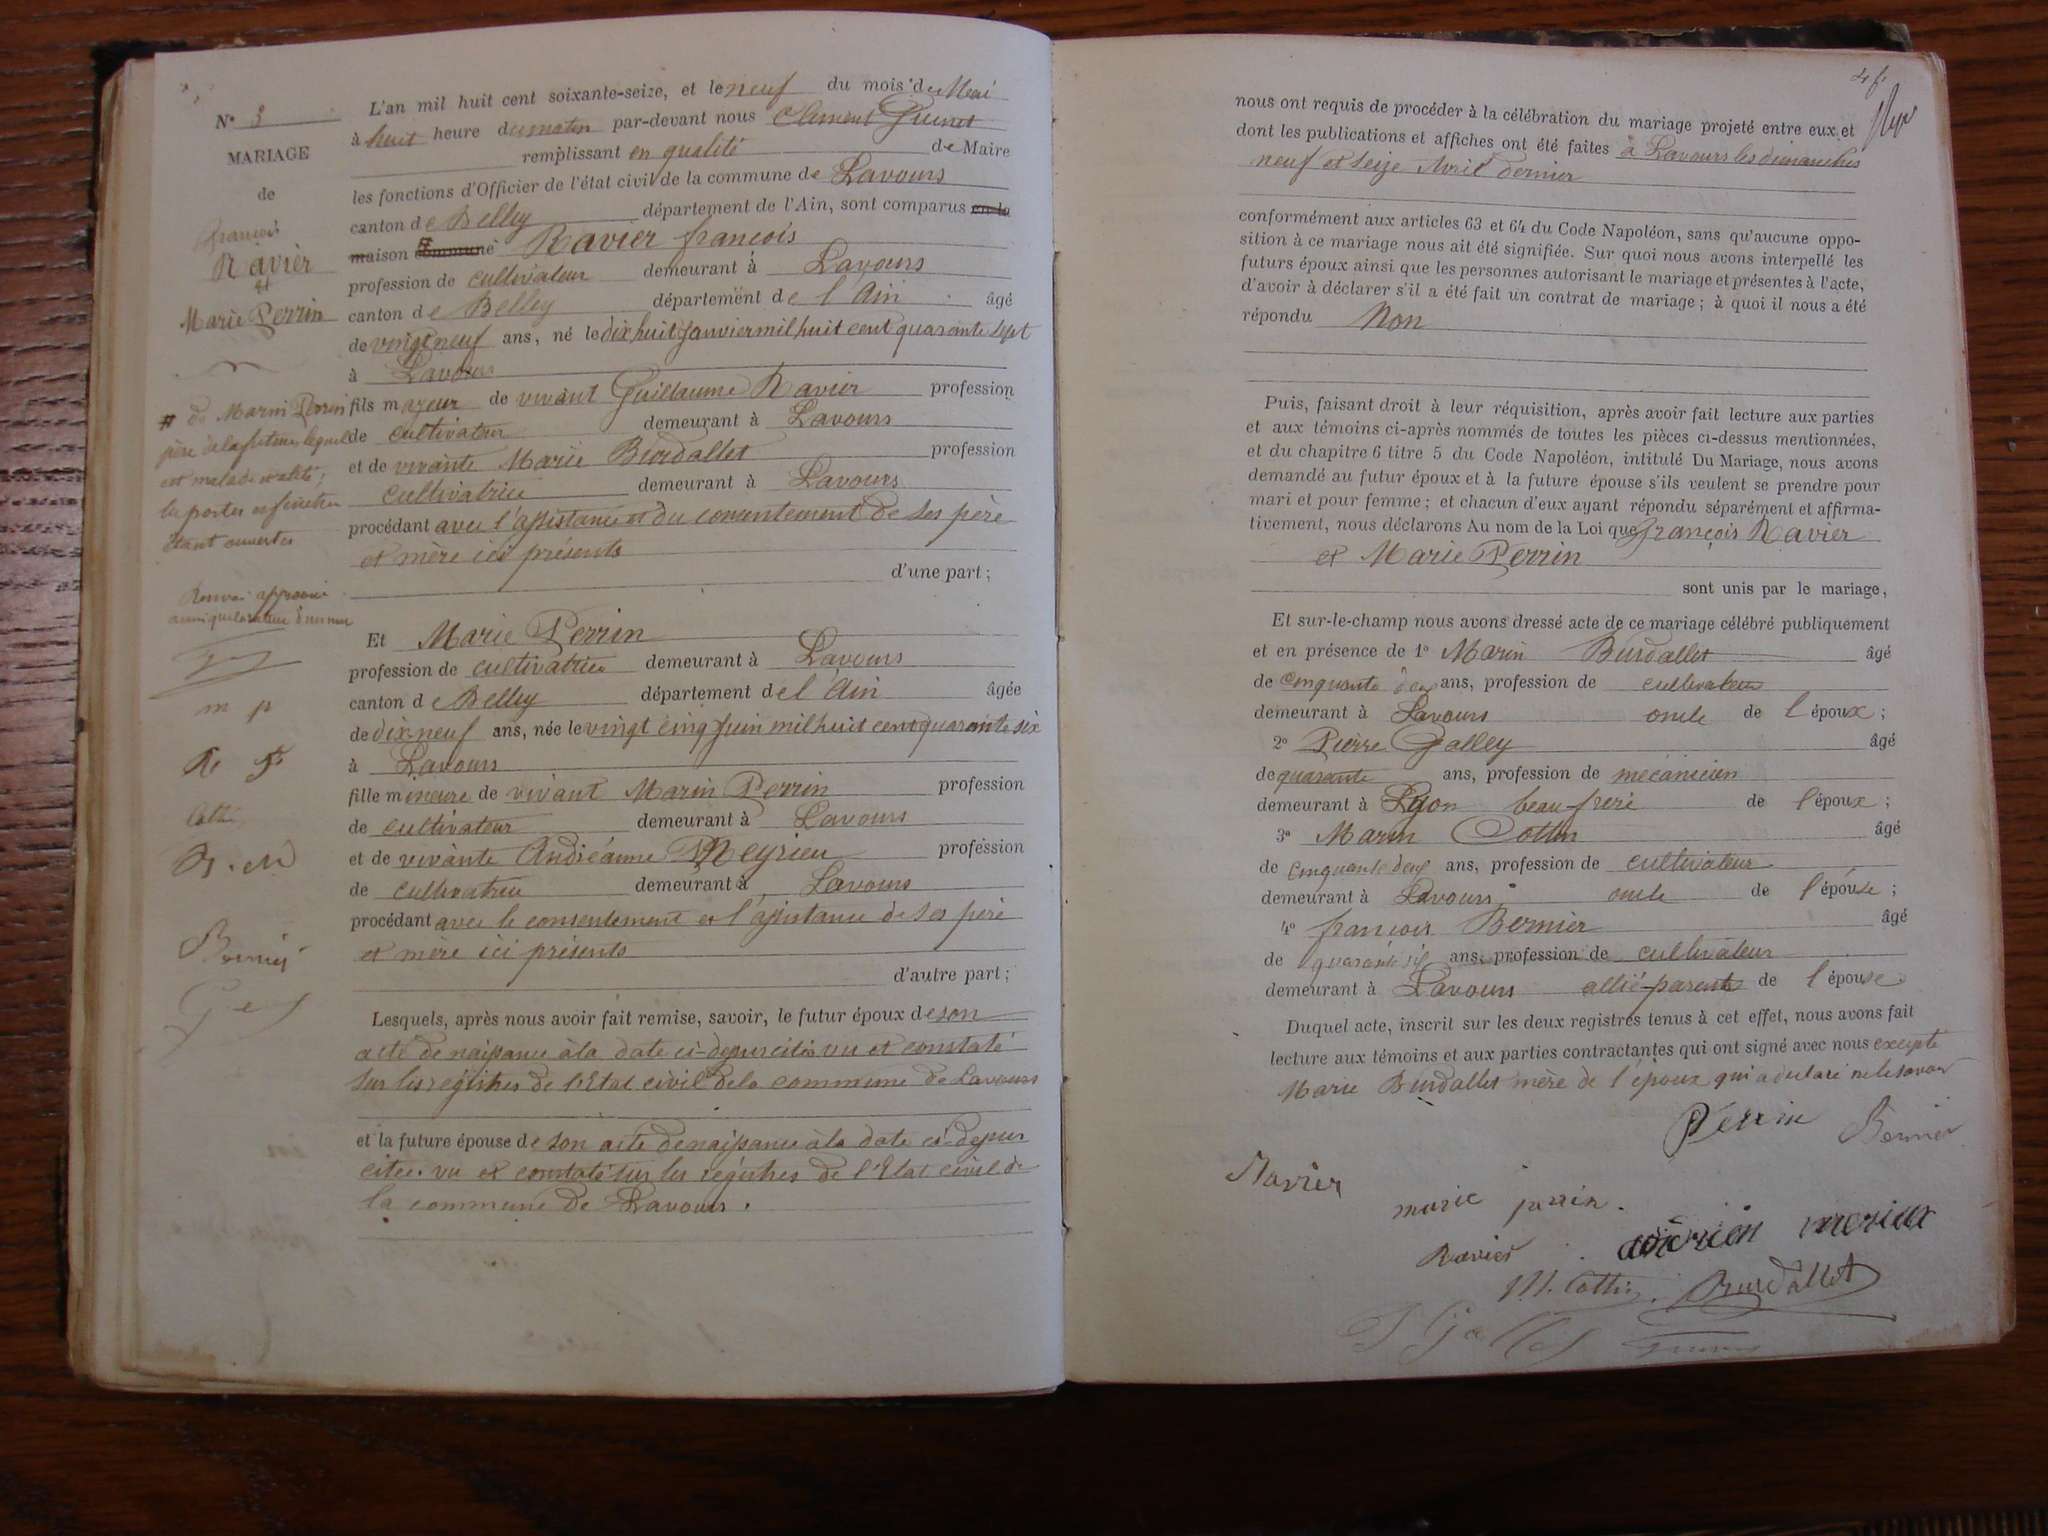 N° 3
MARIAGE
de
françois
Ravier
et
Marie Perrin
# de Marin Perrin
père de la future lequel
est malade et alité;
les portes et fenêtres
étant ouvertes
Renvoi approuvé
m p
Bernier
L'an mil huit cent soixante-seize, et le neuf du mois de Mai
à huit heure du matin par-devant nous Clément Guinet
remplissant en qualité de Maire
les fonctions d'Officier de l'état civil de la commune de Lavours
canton de Belley département de l'Ain, sont comparus en la
maison commune # Ravier françois
profession de cultivateur demeurant à Lavours
canton de Belley département de l'Ain âgé
de vingt neuf ans, né le dix huit Janvier mil huit cent quarante sept
à Lavours
fils majeur de vivant Guillaume Ravier profession
de cultivateur demeurant à Lavours
et de vivante Marie Burdallet profession
cultivatrice demeurant à Lavours
procédant avec l'assistance et du consentement de ses père
et mère ici présents
d'une part;
Et Marie Perrin
profession de cultivatrice demeurant à Lavours
canton de Belley département de l'Ain âgée
de dix-neuf ans, née le vingt cinq Juin mil huit cent quarante six
à Lavours
fille mineure de vivant Marin Perrin profession
de cultivateur demeurant à Lavours
et de vivante Andréanne Meyrieu profession
de cultivatrice demeurant à Lavours
procédant avec le consentement et l'assistance de ses père
et mère ici présents
d'autre part;
Lesquels, après nous avoir fait remise, savoir, le futur époux de son
acte de naissance à la date ci-dessus citée vu et constaté
sur les registres de l'Etat civil de la commune de Lavours
et la future épouse de son acte de naissance à la date ci-dessus
citée. vu et constaté sur les registres de l'Etat civil de
la commune de Lavours.
4
nous ont requis de procéder à la célébration du mariage projeté entre eux et
dont les publications et affiches ont été faites à Lavours les dimanches
neuf et seize Avril dernier
conformément aux articles 63 et 64 du Code Napoléon, sans qu'aucune oppo-
sition à ce mariage nous ait été signifiée. Sur quoi nous avons interpellé les
futurs époux ainsi que les personnes autorisant le mariage et présentes à l'acte,
d'avoir à déclarer s'il a été fait un contrat de mariage; à quoi il nous a été
répondu Non
Puis, faisant droit à leur réquisition, après avoir fait lecture aux parties
et aux témoins ci-après nommés de toutes les pièces ci-dessus mentionnées,
et du chapitre 6 titre 5 du Code Napoléon, intitulé Du Mariage, nous avons
demandé au futur époux et à la future épouse s'ils veulent se prendre pour
mari et pour femme; et chacun d'eux ayant répondu séparément et affirma-
tivement, nous déclarons Au nom de la Loi que françois Ravier
et Marie Perrin
sont unis par le mariage,
Et sur-le-champ nous avons dressé acte de ce mariage célébré publiquement
et en présence de 1° Marin Burdallet âgé
de cinquante deux ans, profession de cultivateur
demeurant à Lavours oncle de l'époux;
2° Pierre Galley âgé
de quarante ans, profession de mecanicien
demeurant à Lyon beau-frere de l'époux;
3° Marin Cottin âgé
de cinquante deux ans, profession de cultivateur
demeurant à Lavours oncle de l'épouse;
4° françois Bernier âgé
de quarante six ans, profession de cultivateur
demeurant à Lavours allié-parent de l'épouse
Duquel acte, inscrit sur les deux registres tenus à cet effet, nous avons fait
lecture aux témoins et aux parties contractantes qui ont signé avec nous excepté
Marie Burdallet mère de l'époux qui a déclaré ne le savoir
Perrin Bernier
Ravier
marie perrin.
Ravier
M. Cottin Burdallet